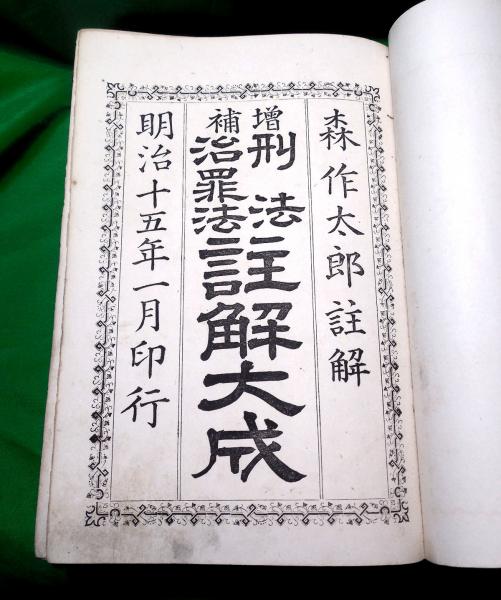 森作太郎註解
増補
刑法
治罪法
註解大成
明治十五年一月印行